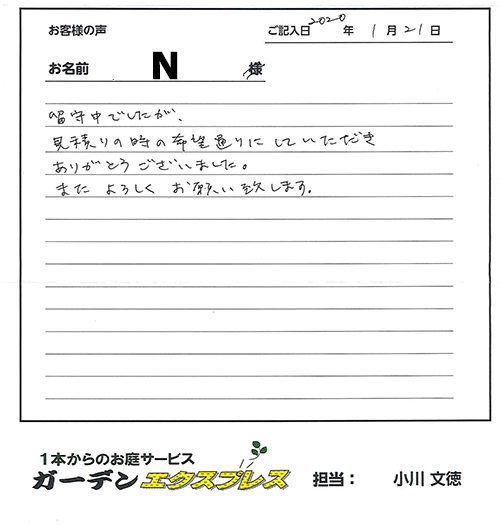 お客様の声
ご記入日 2020 年 1 月 21 日
お名前 N 様
留守中でしたが、
見積りの時の希望通りにしていただき
ありがとうございました。
また よろしく お願い致します。
1本からのお庭サービス
ガーデンエクスプレス 担当： 小川 文徳